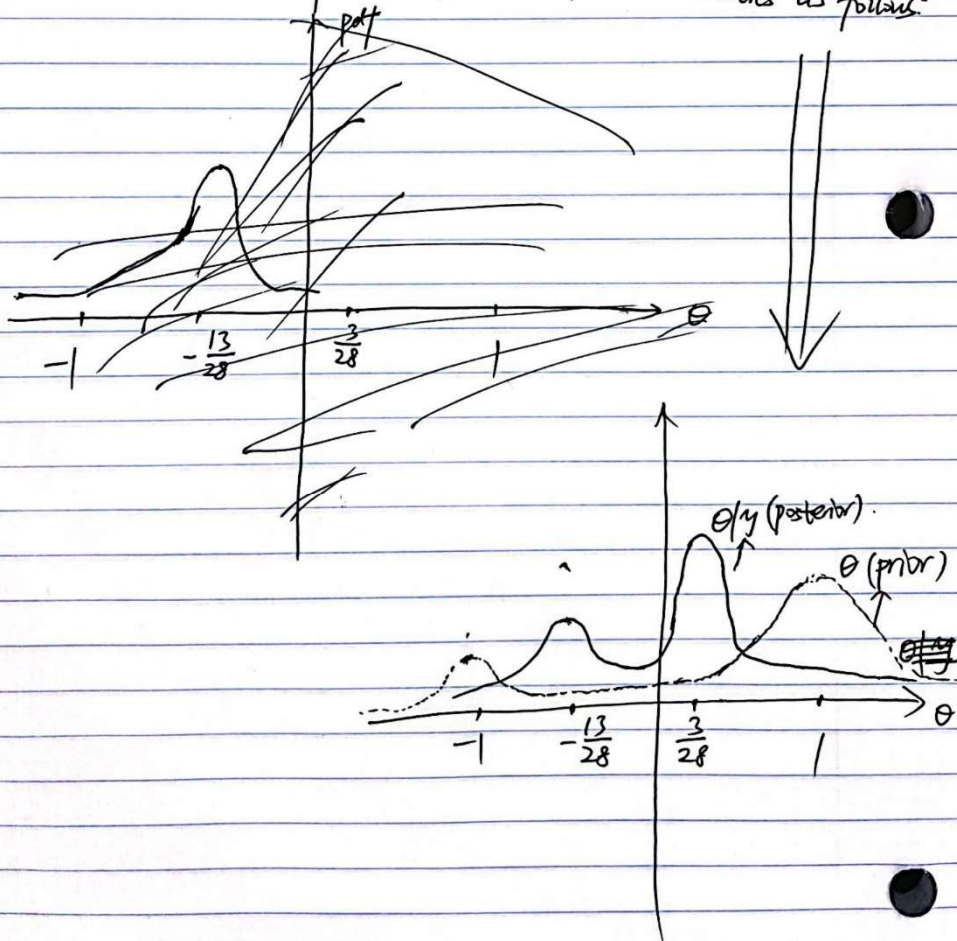 as follows.
pdf
θ
-1 -13/28 3/28 1
θ|y (posterior).
θ (prior)
θ|y
θ
-1 -13/28 3/28 1